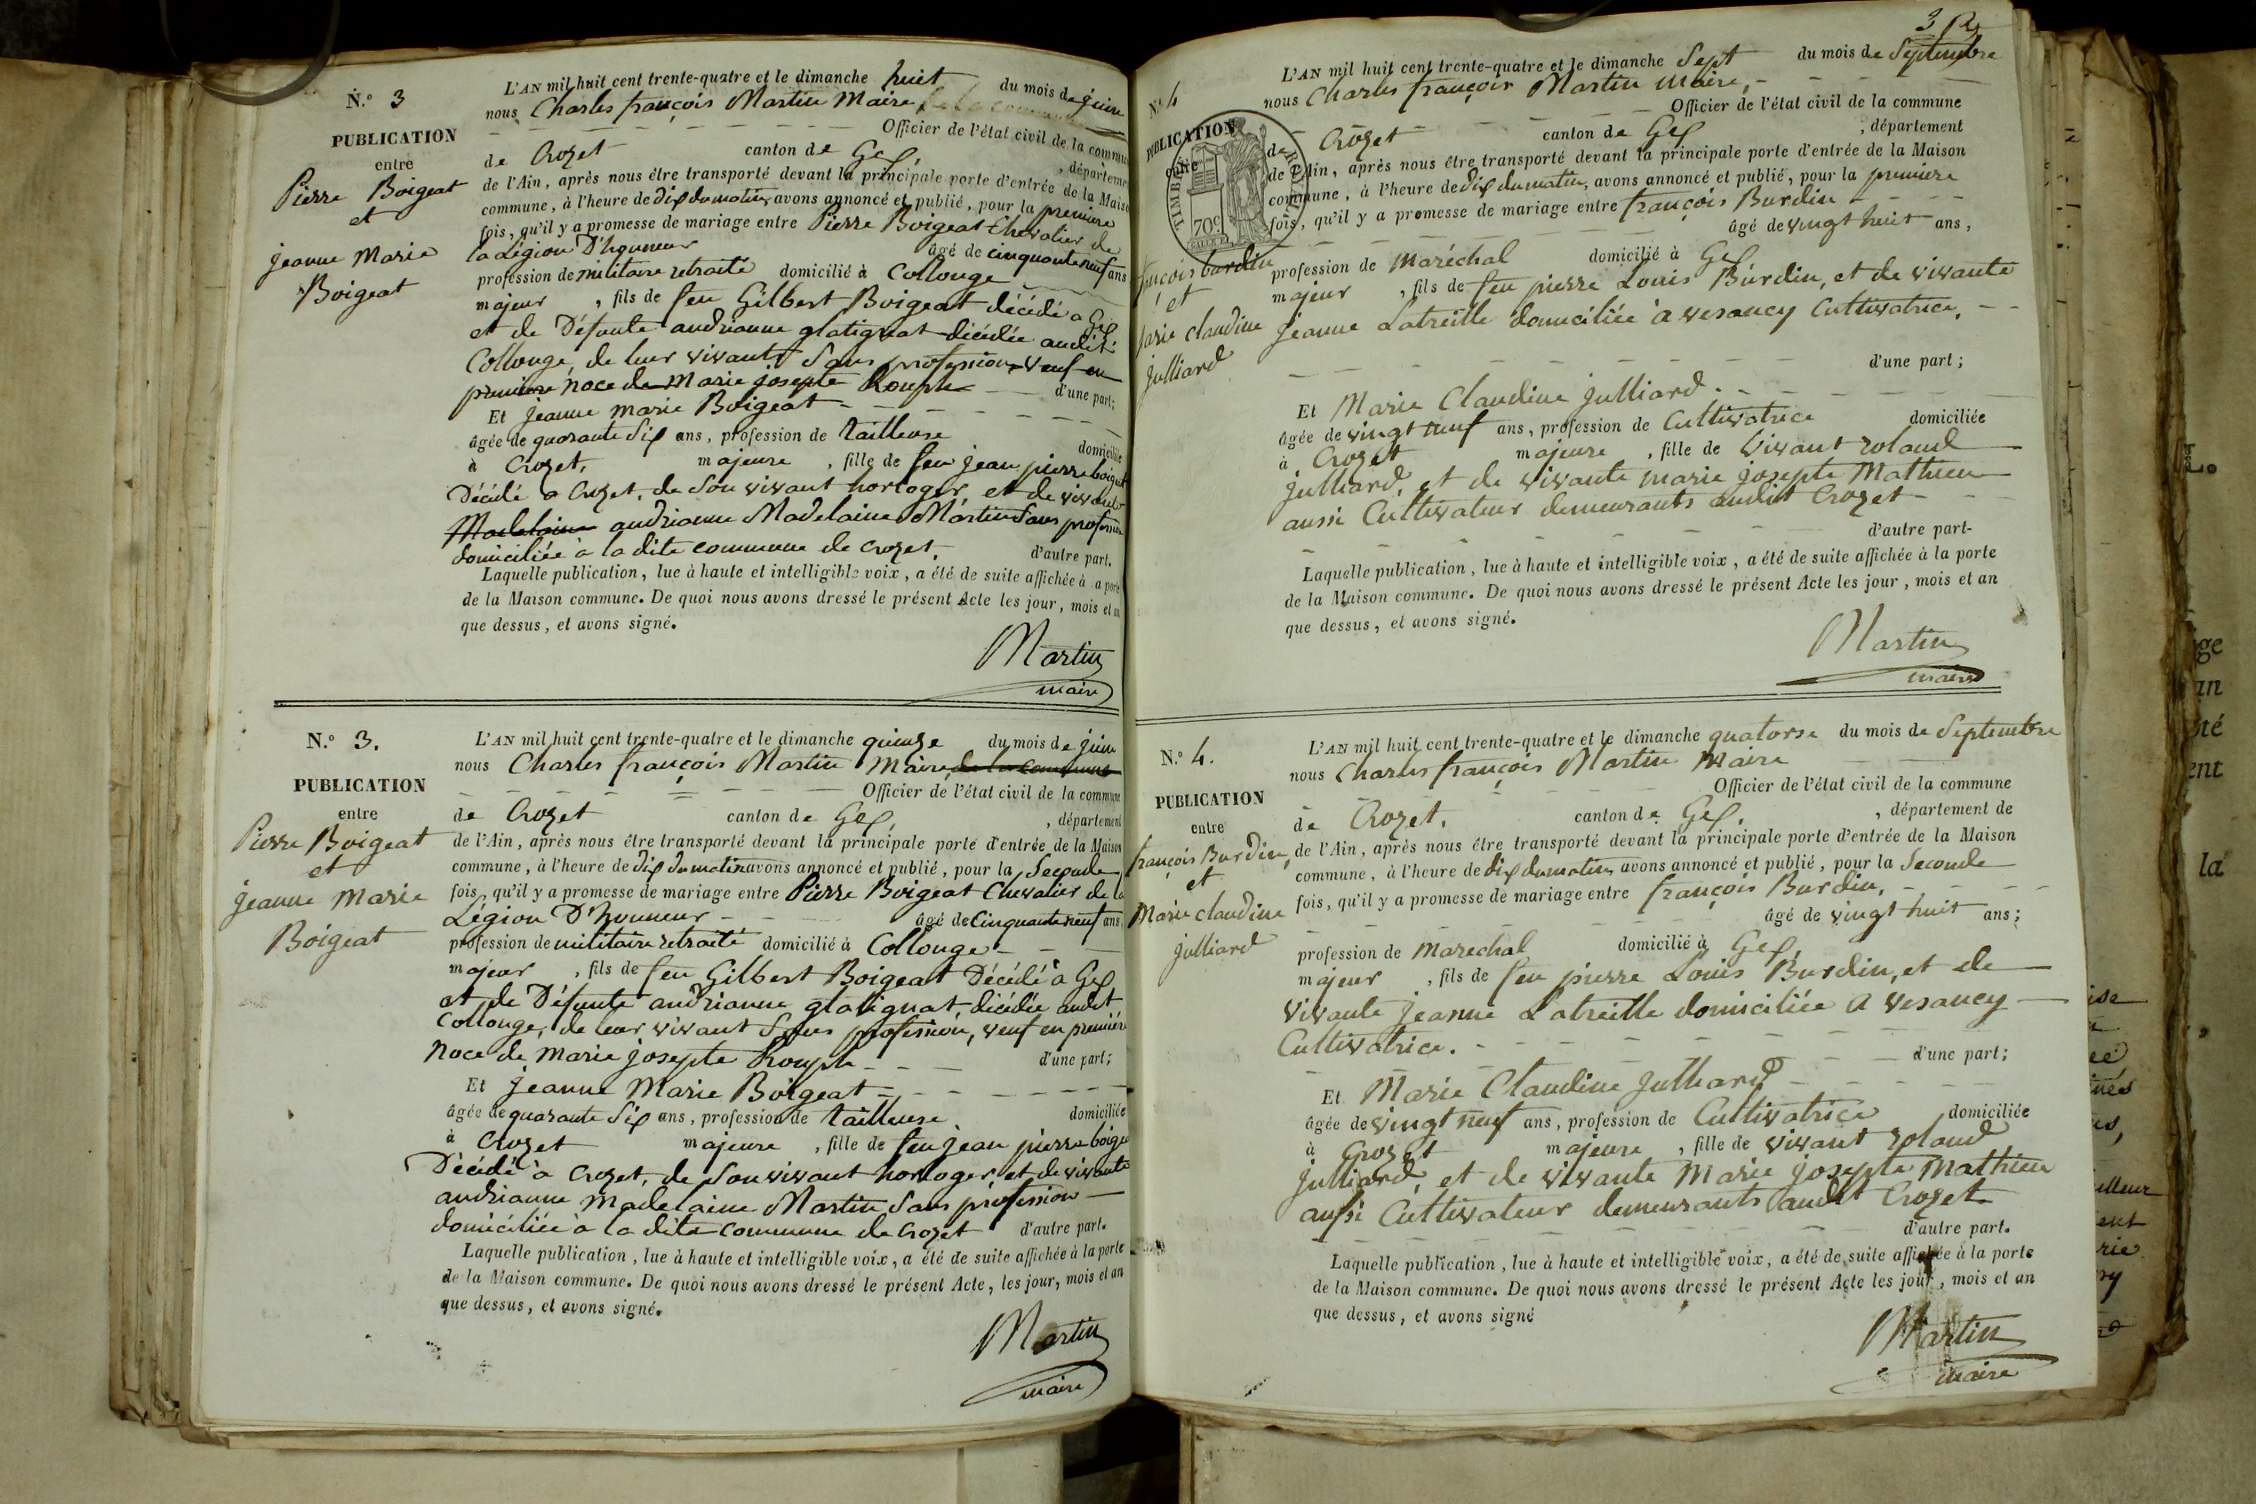 N.o 3
PUBLICATION
entre
Pierre Boigeat
et
jeanne Marie
Boigeat
L'AN mil huit cent trente-quatre et le dimanche huit du mois de juin
nous Charles françois Martin Maire
Officier de l'état civil de la commune
de Crozet canton de Gex, département
de l'Ain, après nous être transporté devant la principale porte d'entrée de la Maison
commune, à l'heure de dix du matin, avons annoncé et publié, pour la premiere
fois, qu'il y a promesse de mariage entre Pierre Boigeat Chevalier de
la Légion D'honneur âgé de cinquante neuf ans
profession de militaire retraité domicilié à Collonge
majeur, fils de feu Gilbert Boigeat décédé a Gex
et de Défunte andrianne glatignat décédée audit
Collonge, de leur vivants Sans profession, veuf en
premiere noce de Marie josepte Rouph d'une part;
Et jeanne marie Boigeat
âgée de quarante Six ans, profession de tailleuse domiciliée
à Crozet, majeure, fille de feu jean pierre boigeat
Décédé a Crozet, de Son vivant horloger, et de vivante
Madelaine andrianne Madelaine Martin Sans profession
domiciliée à la dite commune de Crozet, d'autre part.
Laquelle publication, lue à haute et intelligible voix, a été de suite affichée à la porte
de la Maison commune. De quoi nous avons dressé le présent Acte les jour, mois et an
que dessus, et avons signé.
Martin
maire
N.o 3.
PUBLICATION
entre
Pierre Boigeat
et
jeanne Marie
Boigeat
L'AN mil huit cent trente-quatre et le dimanche quinze du mois de juin
nous Charles françois Martin Maire, de la commune
Officier de l'état civil de la commune
de Crozet canton de Gex, département
de l'Ain, après nous être transporté devant la principale porte d'entrée de la Maison
commune, à l'heure de dix du matin avons annoncé et publié, pour la Seconde
fois, qu'il y a promesse de mariage entre Pierre Boigeat Chevalier de la
Légion D'honneur âgé de Cinquante neuf ans,
profession de militaire retraité domicilié à Collonge
majeur, fils de feu Gilbert Boigeat Décédé à Gex
et de Défunte andrianne glatignat, décédée audit
Collonge, de leur vivant Sans profession, veuf en premiere
noce de Marie josepte Rouph d'une part;
Et jeanne Marie Boigeat
âgée de quarante Six ans, profession de tailleuse domiciliée
à Crozet majeure, fille de feu jean pierre boigeat
Décédé à Crozet, de Son vivant horloger, et de vivante
andrianne Madelaine Martin Sans profession
domiciliée à la dite commune de Crozet d'autre part.
Laquelle publication, lue à haute et intelligible voix, a été de suite affichée à la porte
de la Maison commune. De quoi nous avons dressé le présent Acte, les jour, mois et an
que dessus, et avons signé.
Martin
maire
N.o 4
PUBLICATION
entre
TIMBRE ROYAL
70c.
françois burdin
et
Marie claudine
julliard
L'AN mil huit cent trente-quatre et le dimanche Sept du mois de Septembre
nous Charles françois Martin Maire,
Officier de l'état civil de la commune
de Crozet canton de Gex, département
de l'Ain, après nous être transporté devant la principale porte d'entrée de la Maison
commune, à l'heure de dix du matin, avons annoncé et publié, pour la premiere
fois, qu'il y a promesse de mariage entre françois Burdin
âgé de vingt huit ans,
profession de Maréchal domicilié à Gex
majeur, fils de feu pierre Louis Burdin, et de vivante
jeanne Latreille domiciliée à vesancy Cultivatrice.
d'une part;
Et Marie Claudine julliard.
âgée de vingt neuf ans, profession de Cultivatrice domiciliée
à Crozet majeure, fille de vivant roland
julliard, et de vivante marie josepte Mathieu
aussi Cultivateur demeurants audit Crozet
d'autre part-
Laquelle publication, lue à haute et intelligible voix, a été de suite affichée à la porte
de la Maison commune. De quoi nous avons dressé le présent Acte les jour, mois et an
que dessus, et avons signé.
Martin
maire
N.o 4.
PUBLICATION
entre
françois Burdin,
et
Marie claudine
julliard
L'AN mil huit cent trente-quatre et le dimanche quatorse du mois de Septembre
nous Charles françois Martin Maire
Officier de l'état civil de la commune
de Crozet, canton de Gex, département de
de l'Ain, après nous être transporté devant la principale porte d'entrée de la Maison
commune, à l'heure de dix du matin, avons annoncé et publié, pour la Seconde
fois, qu'il y a promesse de mariage entre françois Burdin,
âgé de vingt huit ans;
profession de Marechal domicilié à Gex,
majeur, fils de feu pierre Louis Burdin, et de
vivante jeanne Latreille domiciliée a vesancy
Cultivatrice. d'une part;
Et Marie Claudine julliard
âgée de vingt neuf ans, profession de Cultivatrice domiciliée
à Crozet majeure, fille de vivant roland
julliard, et de vivante Marie josepte Mathieu
aussi Cultivateur demeurants audit Crozet
d'autre part.
Laquelle publication, lue à haute et intelligible voix, a été de suite affichée à la porte
de la Maison commune. De quoi nous avons dressé le présent Acte les jour, mois et an
que dessus, et avons signé
Martin
maire